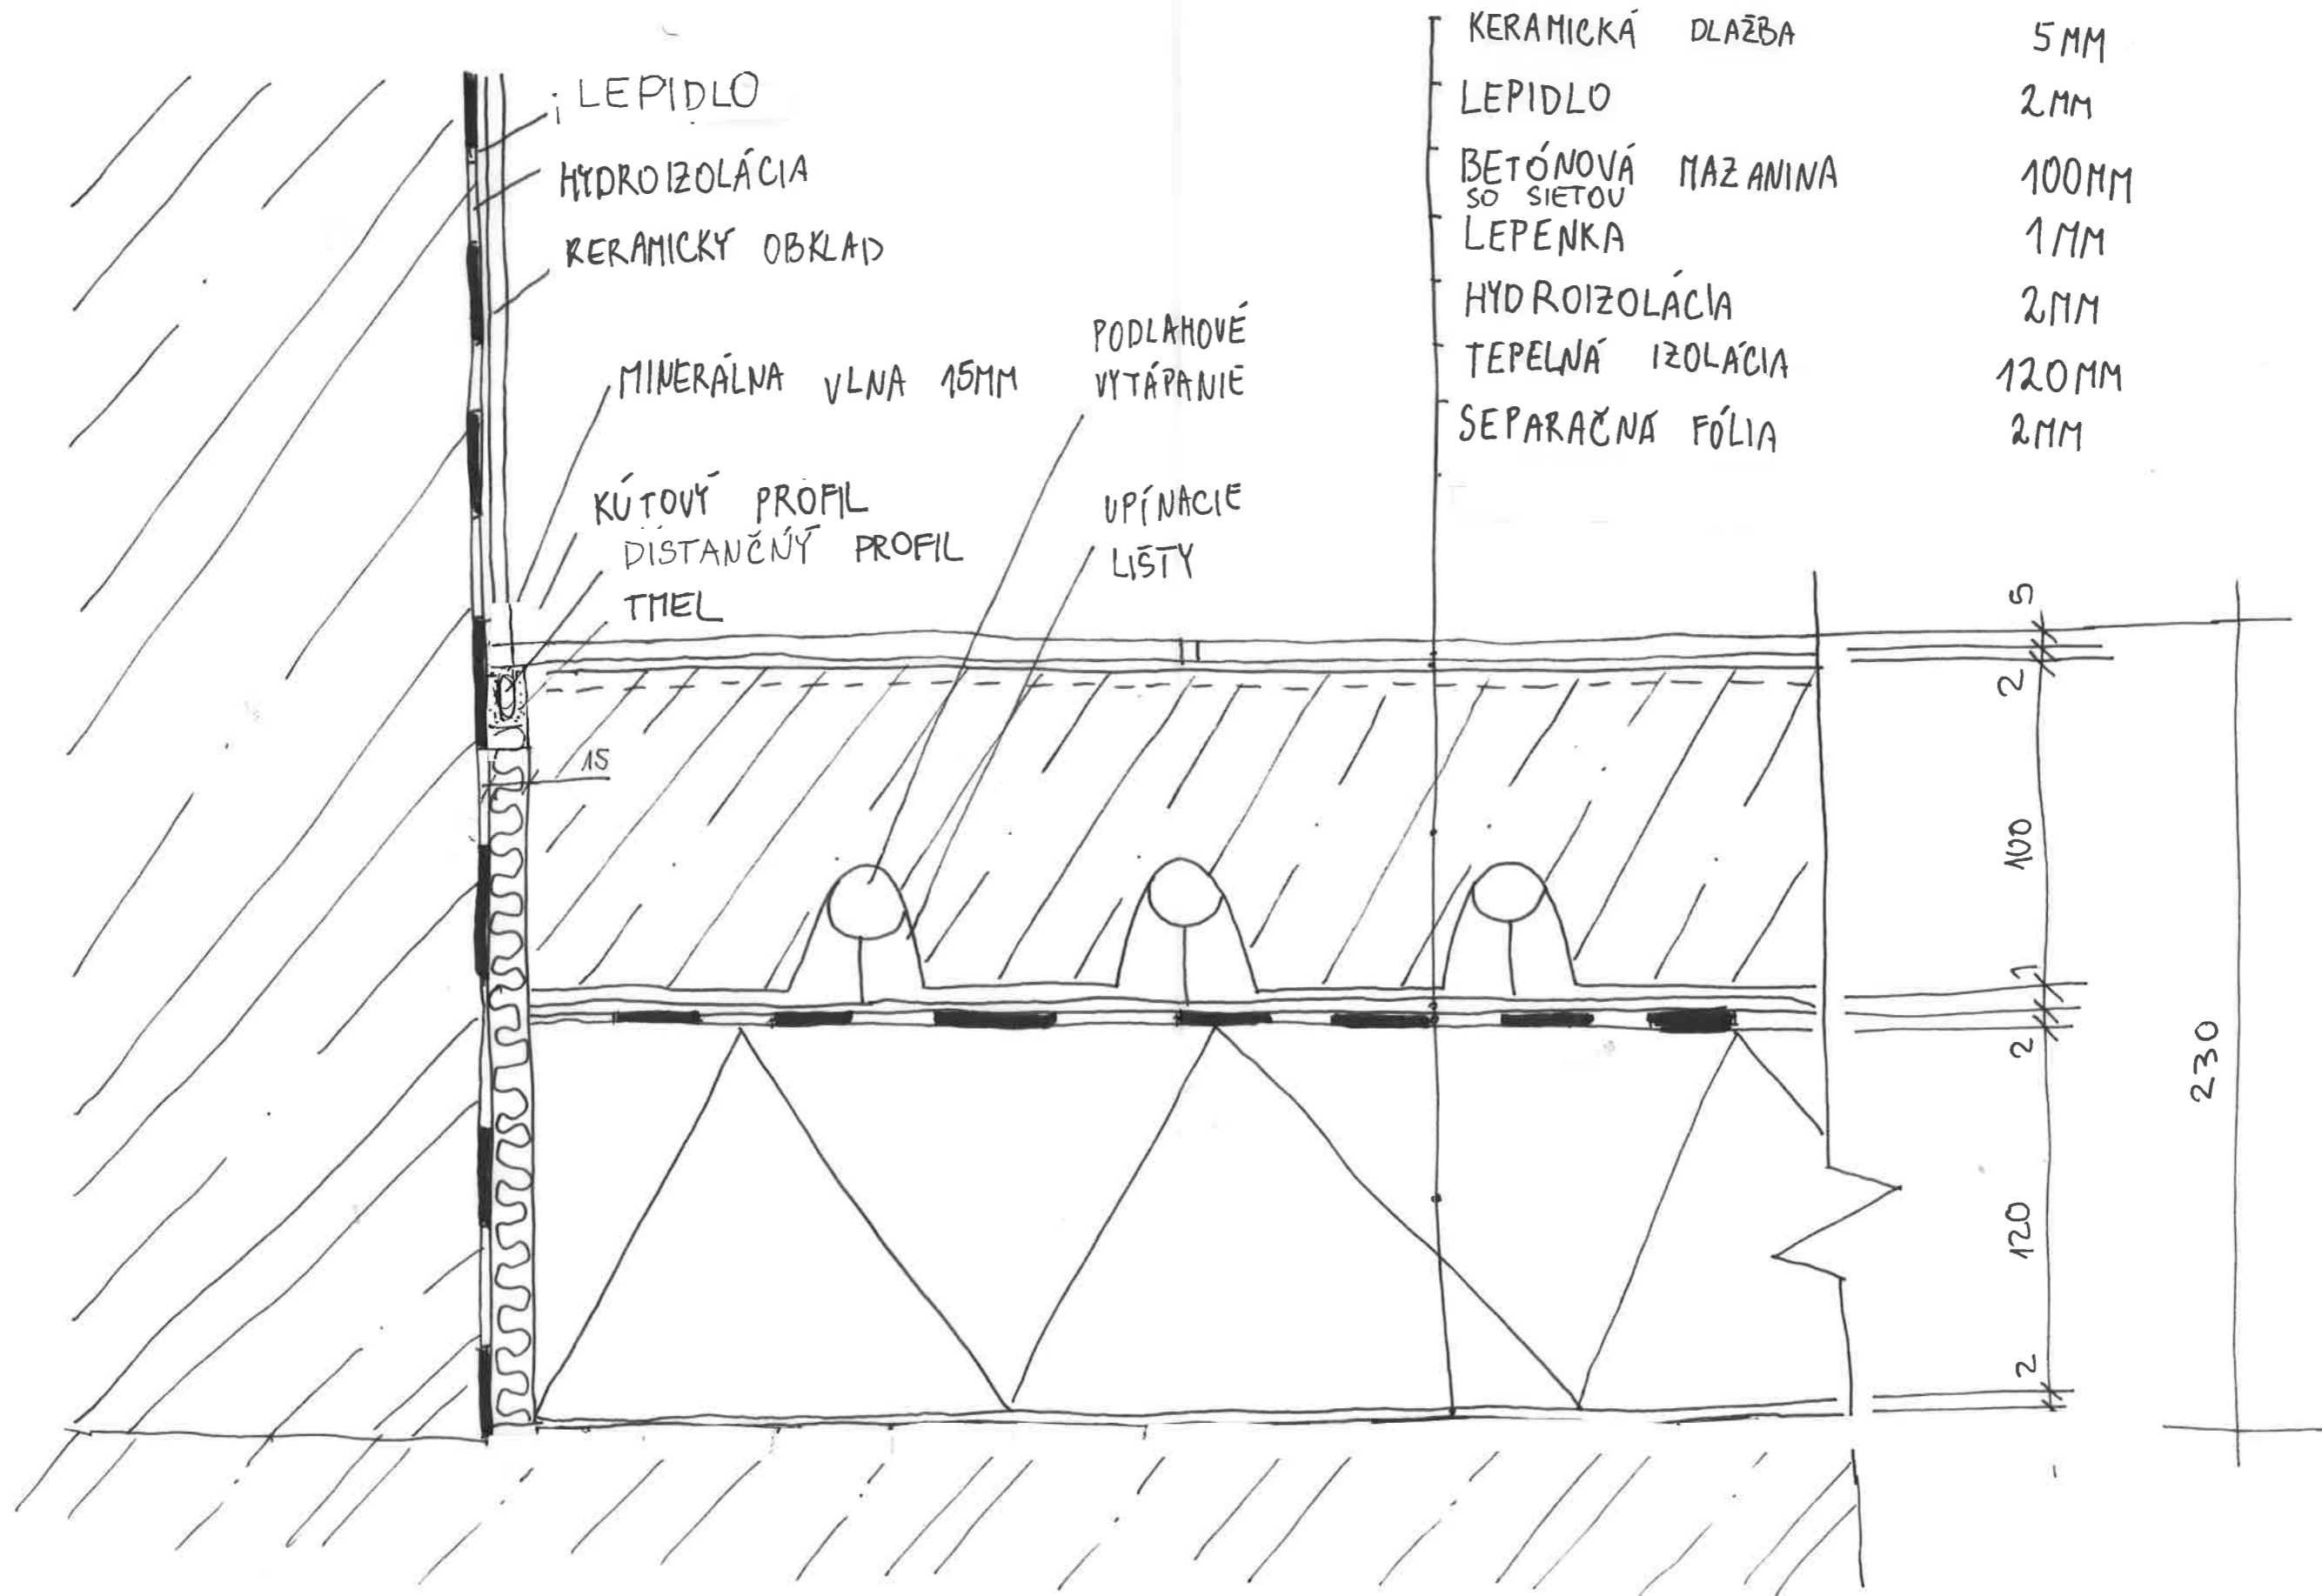 LEPIDLO
HYDROIZOLÁCIA
KERAMICKÝ OBKLAD
MINERÁLNA VLNA 15MM
KÚTOVÝ PROFIL
DISTANČNÝ PROFIL
TMEL
PODLAHOVÉ
VYTÁPANIE
UPÍNACIE
LIŠTY
KERAMICKÁ DLAŽBA 5MM
LEPIDLO 2MM
BETÓNOVÁ MAZANINA 100MM
SO SIETOU
LEPENKA 1MM
HYDROIZOLÁCIA 2MM
TEPELNÁ IZOLÁCIA 120MM
SEPARAČNÁ FÓLIA 2MM
15
5
2
100
1
2
120
2
230